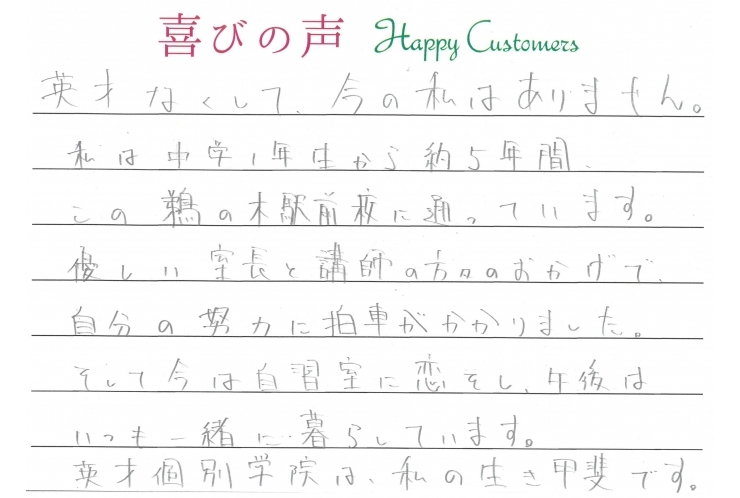 喜びの声 Happy Customers
英才なくして、今の私はありません。
私は中学1年生から約5年間、
この鵜の木駅前校に通っています。
優しい室長と講師の方々のおかげで、
自分の努力に拍車がかかりました。
そして今は自習室に恋をし、午後は
いつも一緒に暮らしています。
英才個別学院は、私の生き甲斐です。